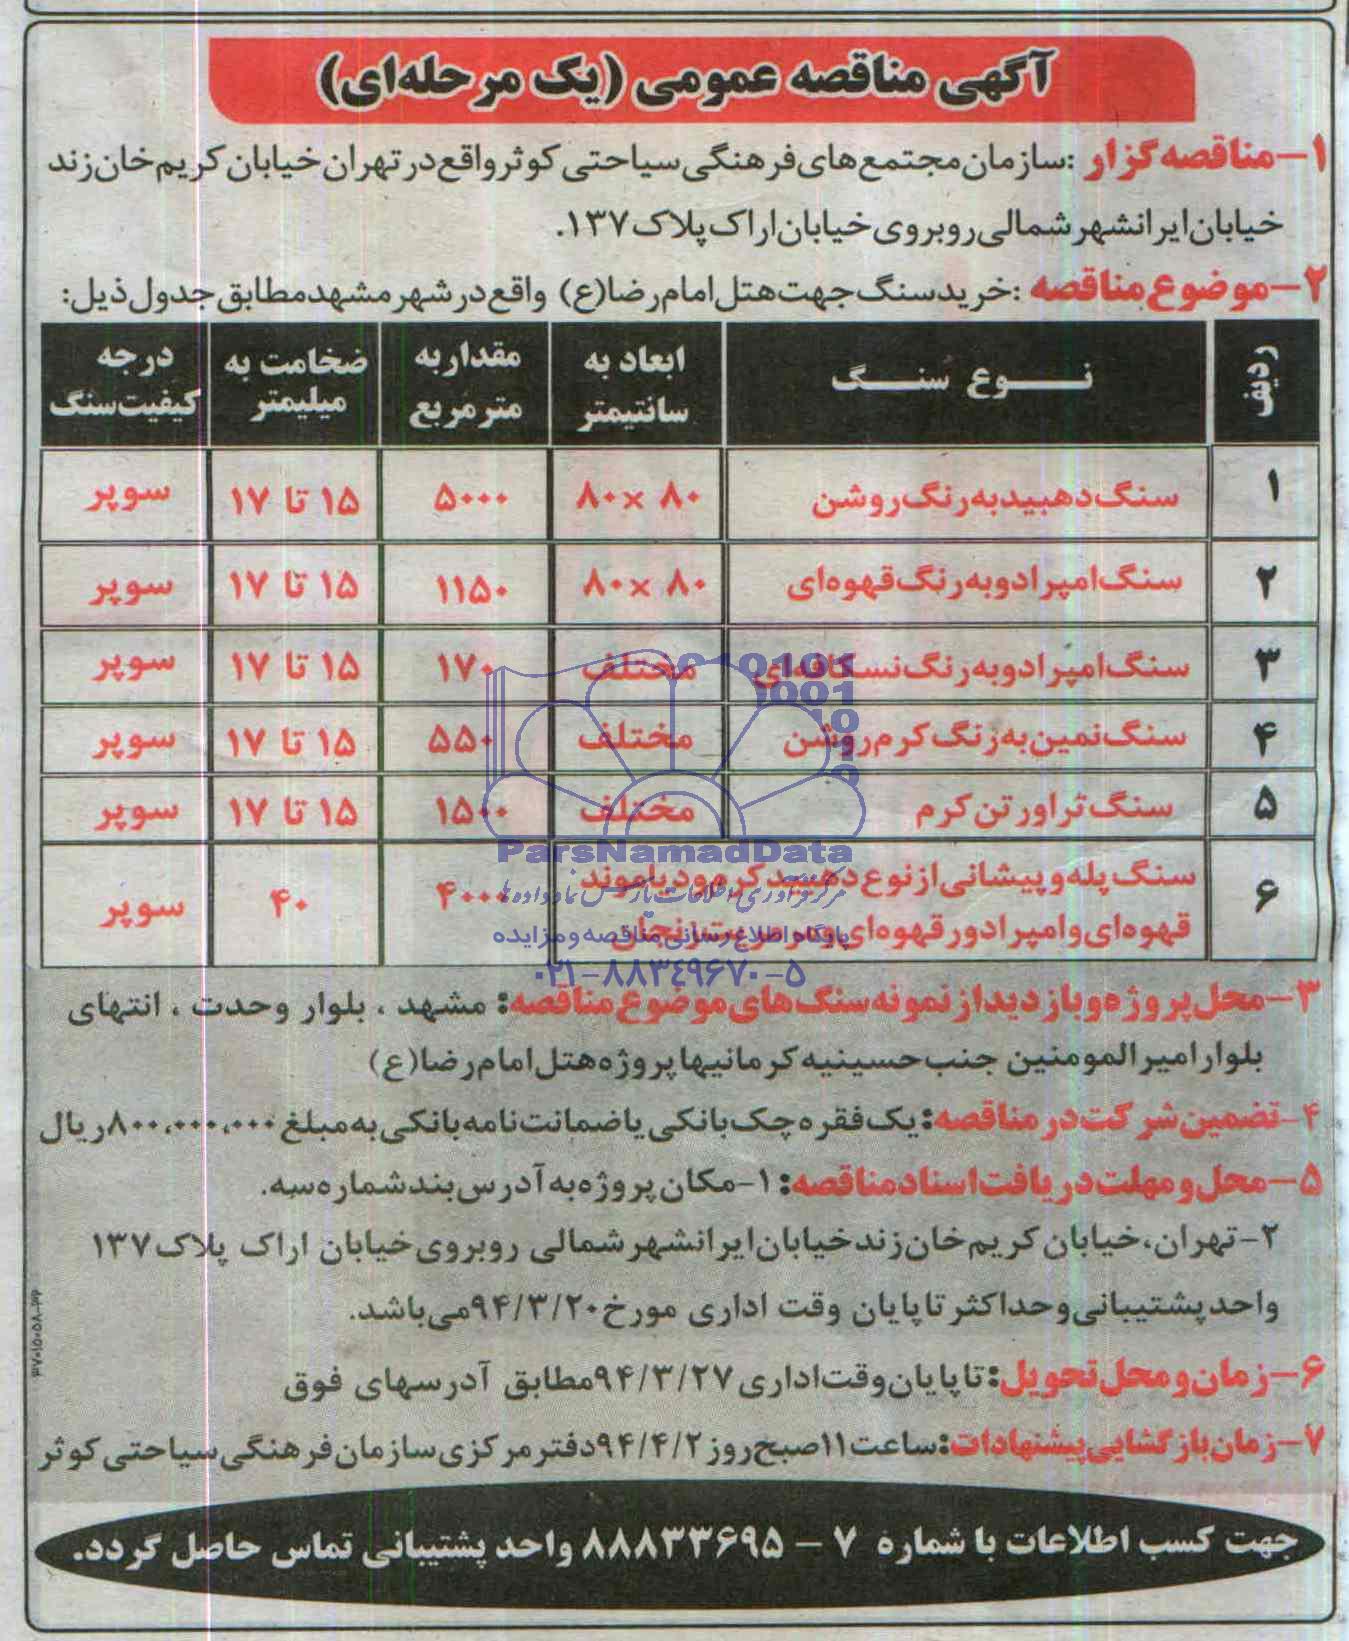 آگهی مناقصه عمومی (یک مرحله‌ای)
۱- مناقصه گزار : سازمان مجتمع های فرهنگی سیاحتی کوثر واقع در تهران خیابان کریم خان زند
خیابان ایرانشهر شمالی روبروی خیابان اراک پلاک ۱۳۷.
۲- موضوع مناقصه : خرید سنگ جهت هتل امام رضا (ع) واقع در شهر مشهد مطابق جدول ذیل:
ردیف | نوع سنگ | ابعاد به سانتیمتر | مقدار به متر مربع | ضخامت به میلیمتر | درجه کیفیت سنگ
۱ | سنگ دهبید به رنگ روشن | ۸۰ × ۸۰ | ۵۰۰۰ | ۱۵ تا ۱۷ | سوپر
۲ | سنگ امپرادو به رنگ قهوه‌ای | ۸۰ × ۸۰ | ۱۱۵۰ | ۱۵ تا ۱۷ | سوپر
۳ | سنگ امپرادو به رنگ نسکافه‌ای | مختلف | ۱۷۰ | ۱۵ تا ۱۷ | سوپر
۴ | سنگ نمین به رنگ کرم روشن | مختلف | ۵۵۰ | ۱۵ تا ۱۷ | سوپر
۵ | سنگ تراورتن کرم | مختلف | ۱۵۰۰ | ۱۵ تا ۱۷ | سوپر
۶ | سنگ پله و پیشانی از نوع دهبید کرم و دیاموند | ۴۰۰۰ | ۴۰ | سوپر
قهوه‌ای و امپرادور قهوه‌ای و
ParsNamadData
مرکز فرآوری اطلاعات پارس نماد داده ها
پایگاه اطلاع رسانی مناقصه و مزایده
۰۲۱-۸۸۳۴۹۶۷۰-۵
۳- محل پروژه و بازدید از نمونه سنگ های موضوع مناقصه: مشهد ، بلوار وحدت ، انتهای
بلوار امیرالمومنین جنب حسینیه کرمانیها پروژه هتل امام رضا (ع)
۴- تضمین شرکت در مناقصه: یک فقره چک بانکی یا ضمانت نامه بانکی به مبلغ ۸۰۰،۰۰۰،۰۰۰ ریال
۵- محل و مهلت دریافت اسناد مناقصه: ۱- مکان پروژه به آدرس بند شماره سه.
۲- تهران، خیابان کریم خان زند خیابان ایرانشهر شمالی روبروی خیابان اراک پلاک ۱۳۷
واحد پشتیبانی و حداکثر تا پایان وقت اداری مورخ ۹۴/۳/۲۰ می باشد.
۶- زمان و محل تحویل: تا پایان وقت اداری ۹۴/۳/۲۷ مطابق آدرسهای فوق
۷- زمان بازگشایی پیشنهادات: ساعت ۱۱ صبح روز ۹۴/۴/۲ دفتر مرکزی سازمان فرهنگی سیاحتی کوثر
جهت کسب اطلاعات با شماره ۷ - ۸۸۸۳۳۶۹۵ واحد پشتیبانی تماس حاصل گردد.